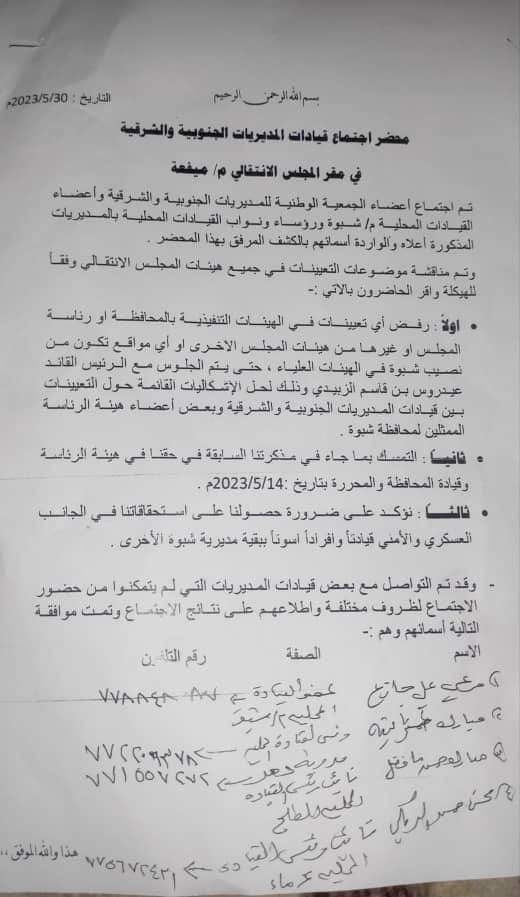 بسم الله الرحمن الرحيم
التاريخ : 2023/5/30م
محضر اجتماع قيادات المديريات الجنوبية والشرقية
في مقر المجلس الانتقالي م/ ميفعة
تم اجتماع أعضاء الجمعية الوطنية للمديريات الجنوبية والشرقية وأعضاء
القيادات المحلية م/ شبوة ورؤساء ونواب القيادات المحلية بالمديريات
المذكورة أعلاه والواردة أسمائهم بالكشف المرفق بهذا المحضر .
وتم مناقشة موضوعات التعيينات في جميع هيئات المجلس الانتقالي وفقاً
للهيكلة واقر الحاضرون بالاتي :-
• اولاً : رفض أي تعيينات في الهيئات التنفيذية بالمحافظة او رئاسة
المجلس او غيرها من هيئات المجلس الاخرى او أي مواقع تكون من
نصيب شبوة في الهيئات العلياء ، حتى يتم الجلوس مع الرئيس القائد
عيدروس بن قاسم الزبيدي وذلك لحل الإشكاليات القائمة حول التعيينات
بين قيادات المديريات الجنوبية والشرقية وبعض أعضاء هيئة الرئاسة
الممثلين لمحافظة شبوة .
• ثانياً : التمسك بما جاء في مذكرتنا السابقة في حقنا في هيئة الرئاسة
وقيادة المحافظة والمحررة بتاريخ :2023/5/14م .
• ثالثاً : نؤكد على ضرورة حصولنا على استحقاقاتنا في الجانب
العسكري والأمني قيادتاً وافراداً اسوتاً ببقية مديرية شبوة الأخرى .
- وقد تم التواصل مع بعض قيادات المديريات التي لم يتمكنوا من حضور
الاجتماع لظروف مختلفة واطلاعهم على نتائج الاجتماع وتمت موافقة
التالية أسمائهم وهم :-
الاسم الصفة رقم التلفون
علي عضو القيادة
المحلية م/
مبارك
٧٧١٥٥٧٢٧٢
نائب رئيس القيادة
محسن القيادة ٧٧٥٦٧٢٤٣١
هذا والله الموفق ,,,